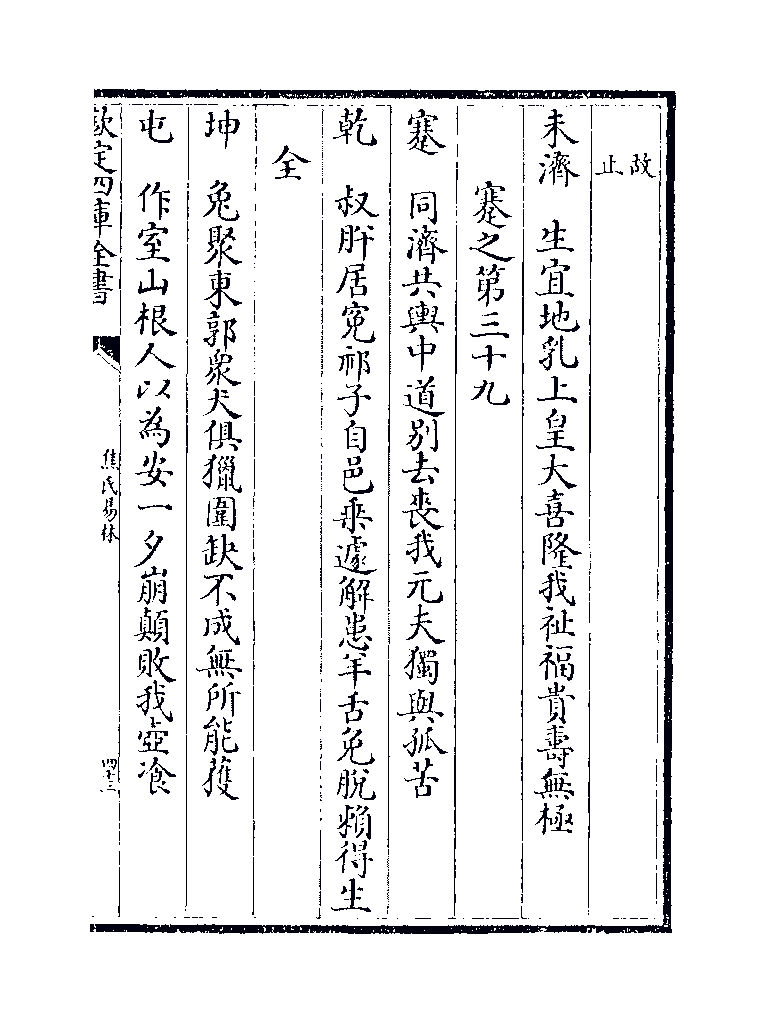 故
止
未濟　生宜地乳上皇大喜隆我祉福貴壽無極
蹇之第三十九
蹇　同濟共輿中道別去喪我元夫獨與孤苦
乾　叔肸居寃祁子自邑乗遽解患羊舌免脫賴得生
全
坤　兔聚東郭衆犬俱獵圍缺不成無所能獲
屯　作室山根人以為安一夕崩顛敗我壺飡
欽定四庫全書
焦氏易林
四十三